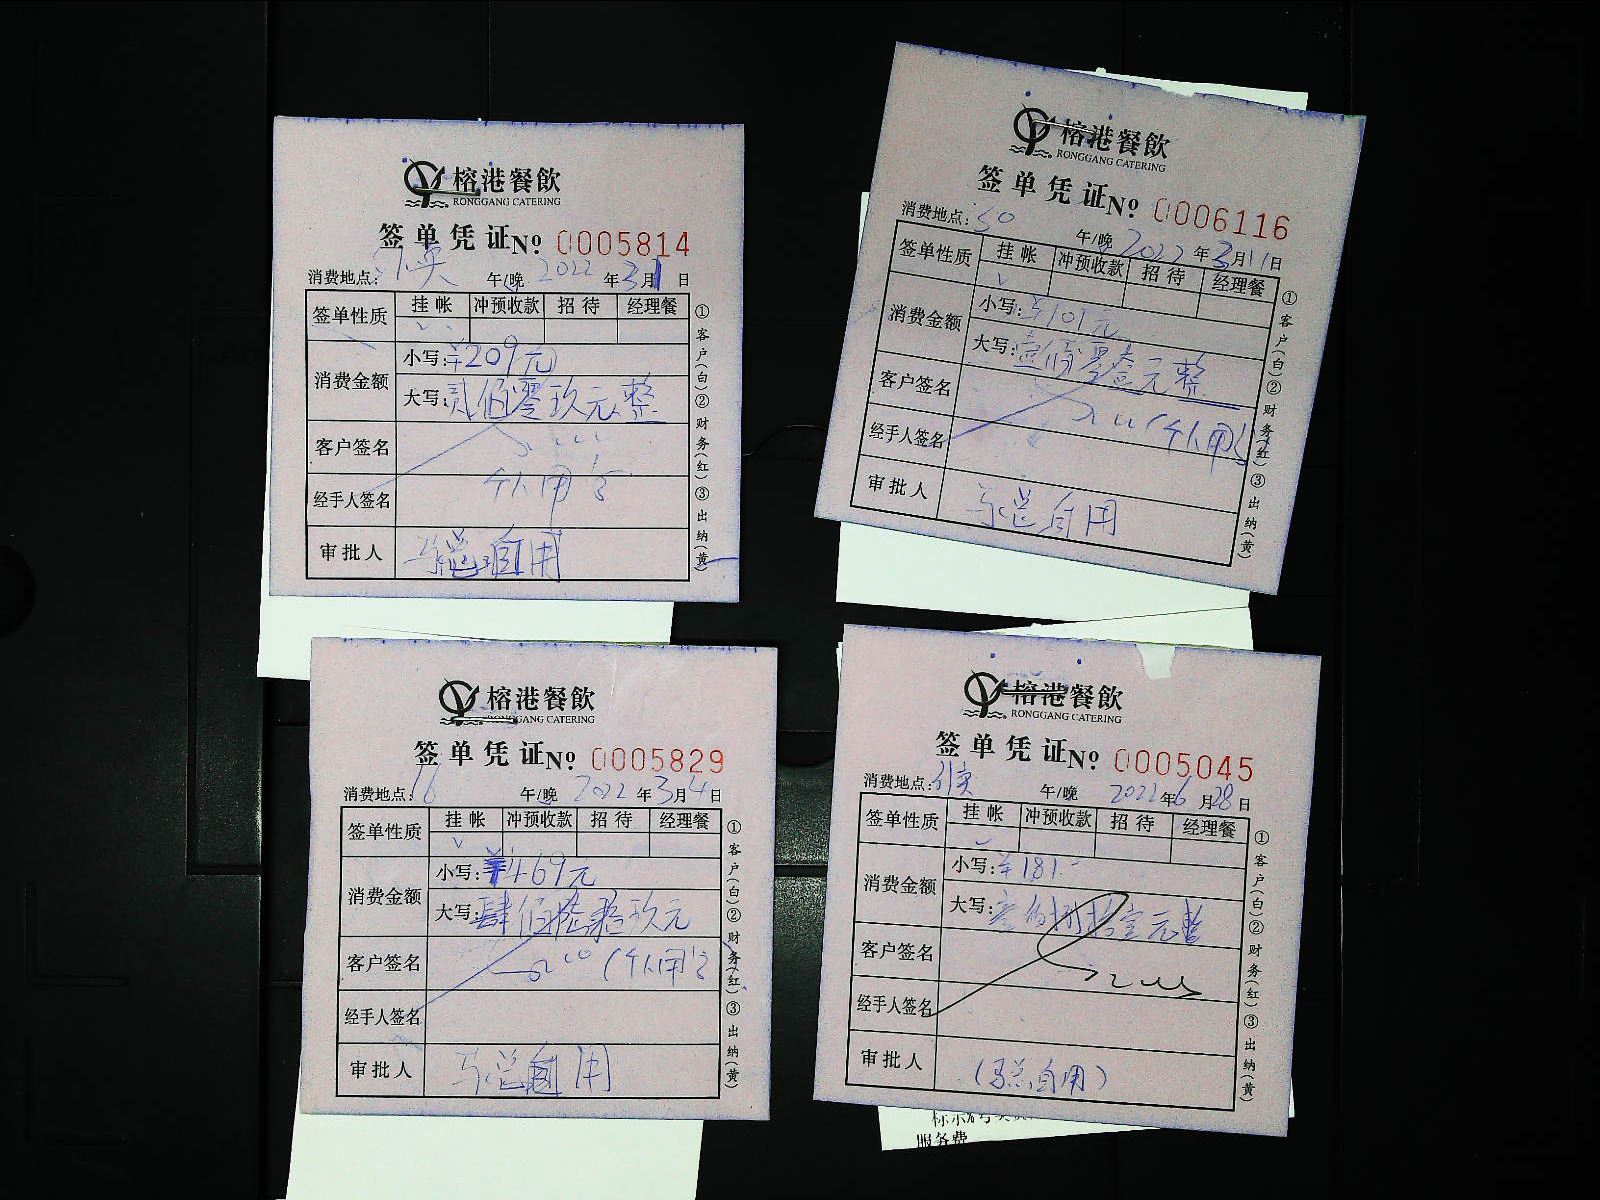 榕港餐飲
RONGGANG CATERING
签单凭证 No 0005814
消费地点: 午/晚 2022 年 3 月 1 日
签单性质 挂帐 冲预收款 招待 经理餐
消费金额
小写: ¥209元
大写: 贰佰零玖元整
客户签名
个人用
经手人签名
审批人 马总自用
①客户(白)②财务(红)③出纳(黄)
榕港餐飲
RONGGANG CATERING
签单凭证 No 0006116
消费地点: 50 午/晚 2022 年 3 月 11 日
签单性质 挂帐 冲预收款 招待 经理餐
消费金额
小写: ¥101元
大写: 壹佰零壹元整
客户签名 (个人用)
经手人签名
审批人 马总自用
①客户(白)②财务(红)③出纳(黄)
榕港餐飲
RONGGANG CATERING
签单凭证 No 0005829
消费地点: 16 午/晚 2022 年 3 月 4 日
签单性质 挂帐 冲预收款 招待 经理餐
消费金额
小写: ¥469元
大写: 肆佰陆拾玖元
客户签名 (个人用)
经手人签名
审批人 马总自用
①客户(白)②财务(红)③出纳(黄)
榕港餐飲
RONGGANG CATERING
签单凭证 No 0005045
消费地点: 午/晚 2022 年 6 月 28 日
签单性质 挂帐 冲预收款 招待 经理餐
消费金额
小写: ¥181.-
大写: 壹佰捌拾壹元整
客户签名
经手人签名
审批人 (马总自用)
①客户(白)②财务(红)③出纳(黄)
服务费